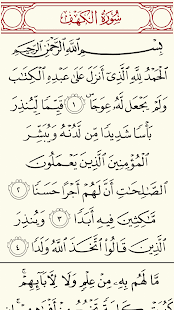 سُورَةُ الكَهۡفِ
بِسۡمِ ٱللَّهِ ٱلرَّحۡمَٰنِ ٱلرَّحِيمِ
ٱلۡحَمۡدُ لِلَّهِ ٱلَّذِيٓ أَنزَلَ عَلَىٰ عَبۡدِهِ ٱلۡكِتَٰبَ
وَلَمۡ يَجۡعَل لَّهُۥ عِوَجَاۜ ١ قَيِّمٗا لِّيُنذِرَ
بَأۡسٗا شَدِيدٗا مِّن لَّدُنۡهُ وَيُبَشِّرَ
ٱلۡمُؤۡمِنِينَ ٱلَّذِينَ يَعۡمَلُونَ
ٱلصَّٰلِحَٰتِ أَنَّ لَهُمۡ أَجۡرًا حَسَنٗا ٢
مَّٰكِثِينَ فِيهِ أَبَدٗا ٣ وَيُنذِرَ
ٱلَّذِينَ قَالُواْ ٱتَّخَذَ ٱللَّهُ وَلَدٗا ٤
مَّا لَهُم بِهِۦ مِنۡ عِلۡمٖ وَلَا لِأٓبَآئِهِمۡۚ
كَبُرَتۡ كَلِمَةٗ تَخۡرُجُ مِنۡ أَفۡوَٰهِهِمۡۚ إِن